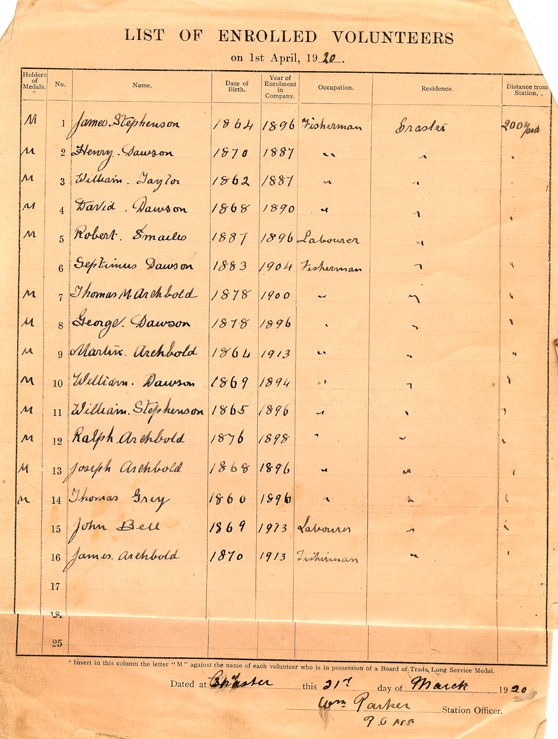 LIST OF ENROLLED VOLUNTEERS
on 1st April, 1920.
Holders of Medals. No. Name. Date of Birth. Year of Enrolment in Company. Occupation. Residence. Distance from Station.
M 1 James Stephenson 1864 1896 Fisherman Craster 200 yds
M 2 Henry Dawson 1870 1887 " " "
M 3 William Taylor 1862 1887 " " "
M 4 David Dawson 1868 1890 " " "
M 5 Robert Smailes 1887 1896 Labourer "
6 Septimus Dawson 1883 1904 Fisherman " "
M 7 Thomas M Archbold 1878 1900 " " "
M 8 George Dawson 1878 1896 " " "
M 9 Martin Archbold 1864 1913 " " "
M 10 William Dawson 1869 1894 " " "
M 11 William Stephenson 1865 1896 " " "
M 12 Ralph Archbold 1876 1898 " " "
M 13 Joseph Archbold 1868 1896 " " "
M 14 Thomas Grey 1860 1896 " " "
15 John Bell 1869 1913 Labourer " "
16 James Archbold 1870 1913 Fisherman " "
17
18
25
* Insert in this column the letter "M" against the name of each volunteer who is in possession of a Board of Trade, Long Service Medal.
Dated at Craster this 21st day of March 1920
Wm Parker Station Officer.